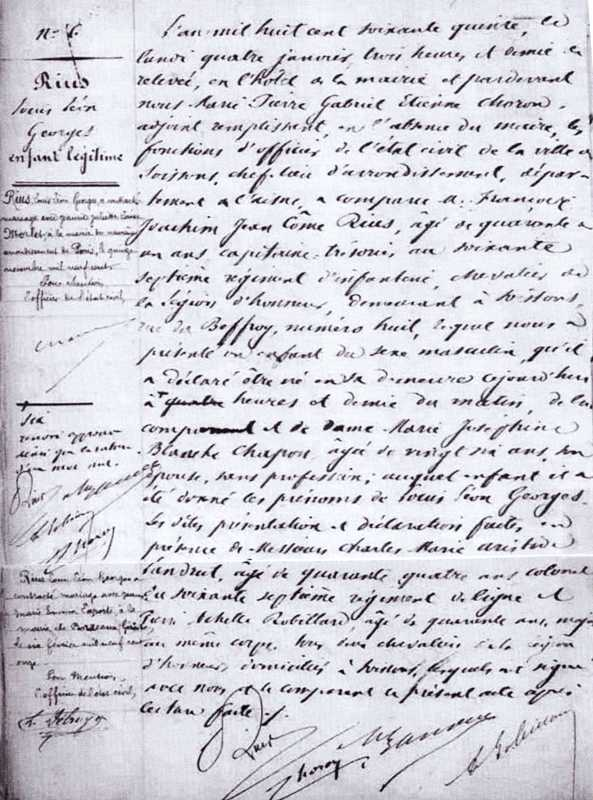 N° 6.
Rius
Louis Léon
Georges
enfant légitime
Rius, Louis Léon Georges, a contracté
mariage avec
à la mairie du
arrondissement de Paris, le quinze
novembre mil neuf cent
Pour mention
l'officier de l'état civil,
six
renvoi approuvé
ainsi que la rature
d'un mot nul.
Rius
Choron
Rius Louis Léon Georges a
contracté mariage avec
Marie à la
mairie de Bordeaux
le six février mil neuf cent
onze.
Pour Mention
l'officier de l'état civil,
L'an mil huit cent soixante quinze, le
lundi quatre janvier, trois heures et demie de
relevée, en l'hôtel de la mairie et pardevant
nous Marie Pierre Gabriel Etienne Choron,
adjoint remplissant, en l'absence du maire, les
fonctions d'officier de l'état civil de la ville de
Soissons, chef-lieu d'arrondissement, dépar-
tement de l'aisne, a comparu M. François
Joachim Jean Côme Rius, âgé de quarante &
un ans, capitaine-trésorier au soixante
septième régiment d'infanterie, chevalier de
la légion d'honneur, demeurant à Soissons,
rue du Beffroy, numéro huit, lequel nous a
présenté un enfant du sexe masculin, qu'il
a déclaré être né en sa demeure cejourd'hui
à quatre heures et demie du matin, de lui
comparant et de dame Marie Joséphine
Blanche Chapon, âgée de vingt six ans, son
épouse, sans profession; auquel enfant il a
été donné les prénoms de Louis Léon Georges.
Les dites présentation et déclaration faites, en
présence de Messieurs Charles Marie Aristide
âgé de quarante quatre ans, colonel
du soixante septième régiment de ligne et
Pierre Achille Robillard âgé de quarante ans, major
au même corps, tous deux chevaliers de la légion
d'honneur, domiciliés à Soissons, lesquels ont signé
avec nous et le comparant le présent acte après
lecture faite.
Rius
Choron
A Robillard